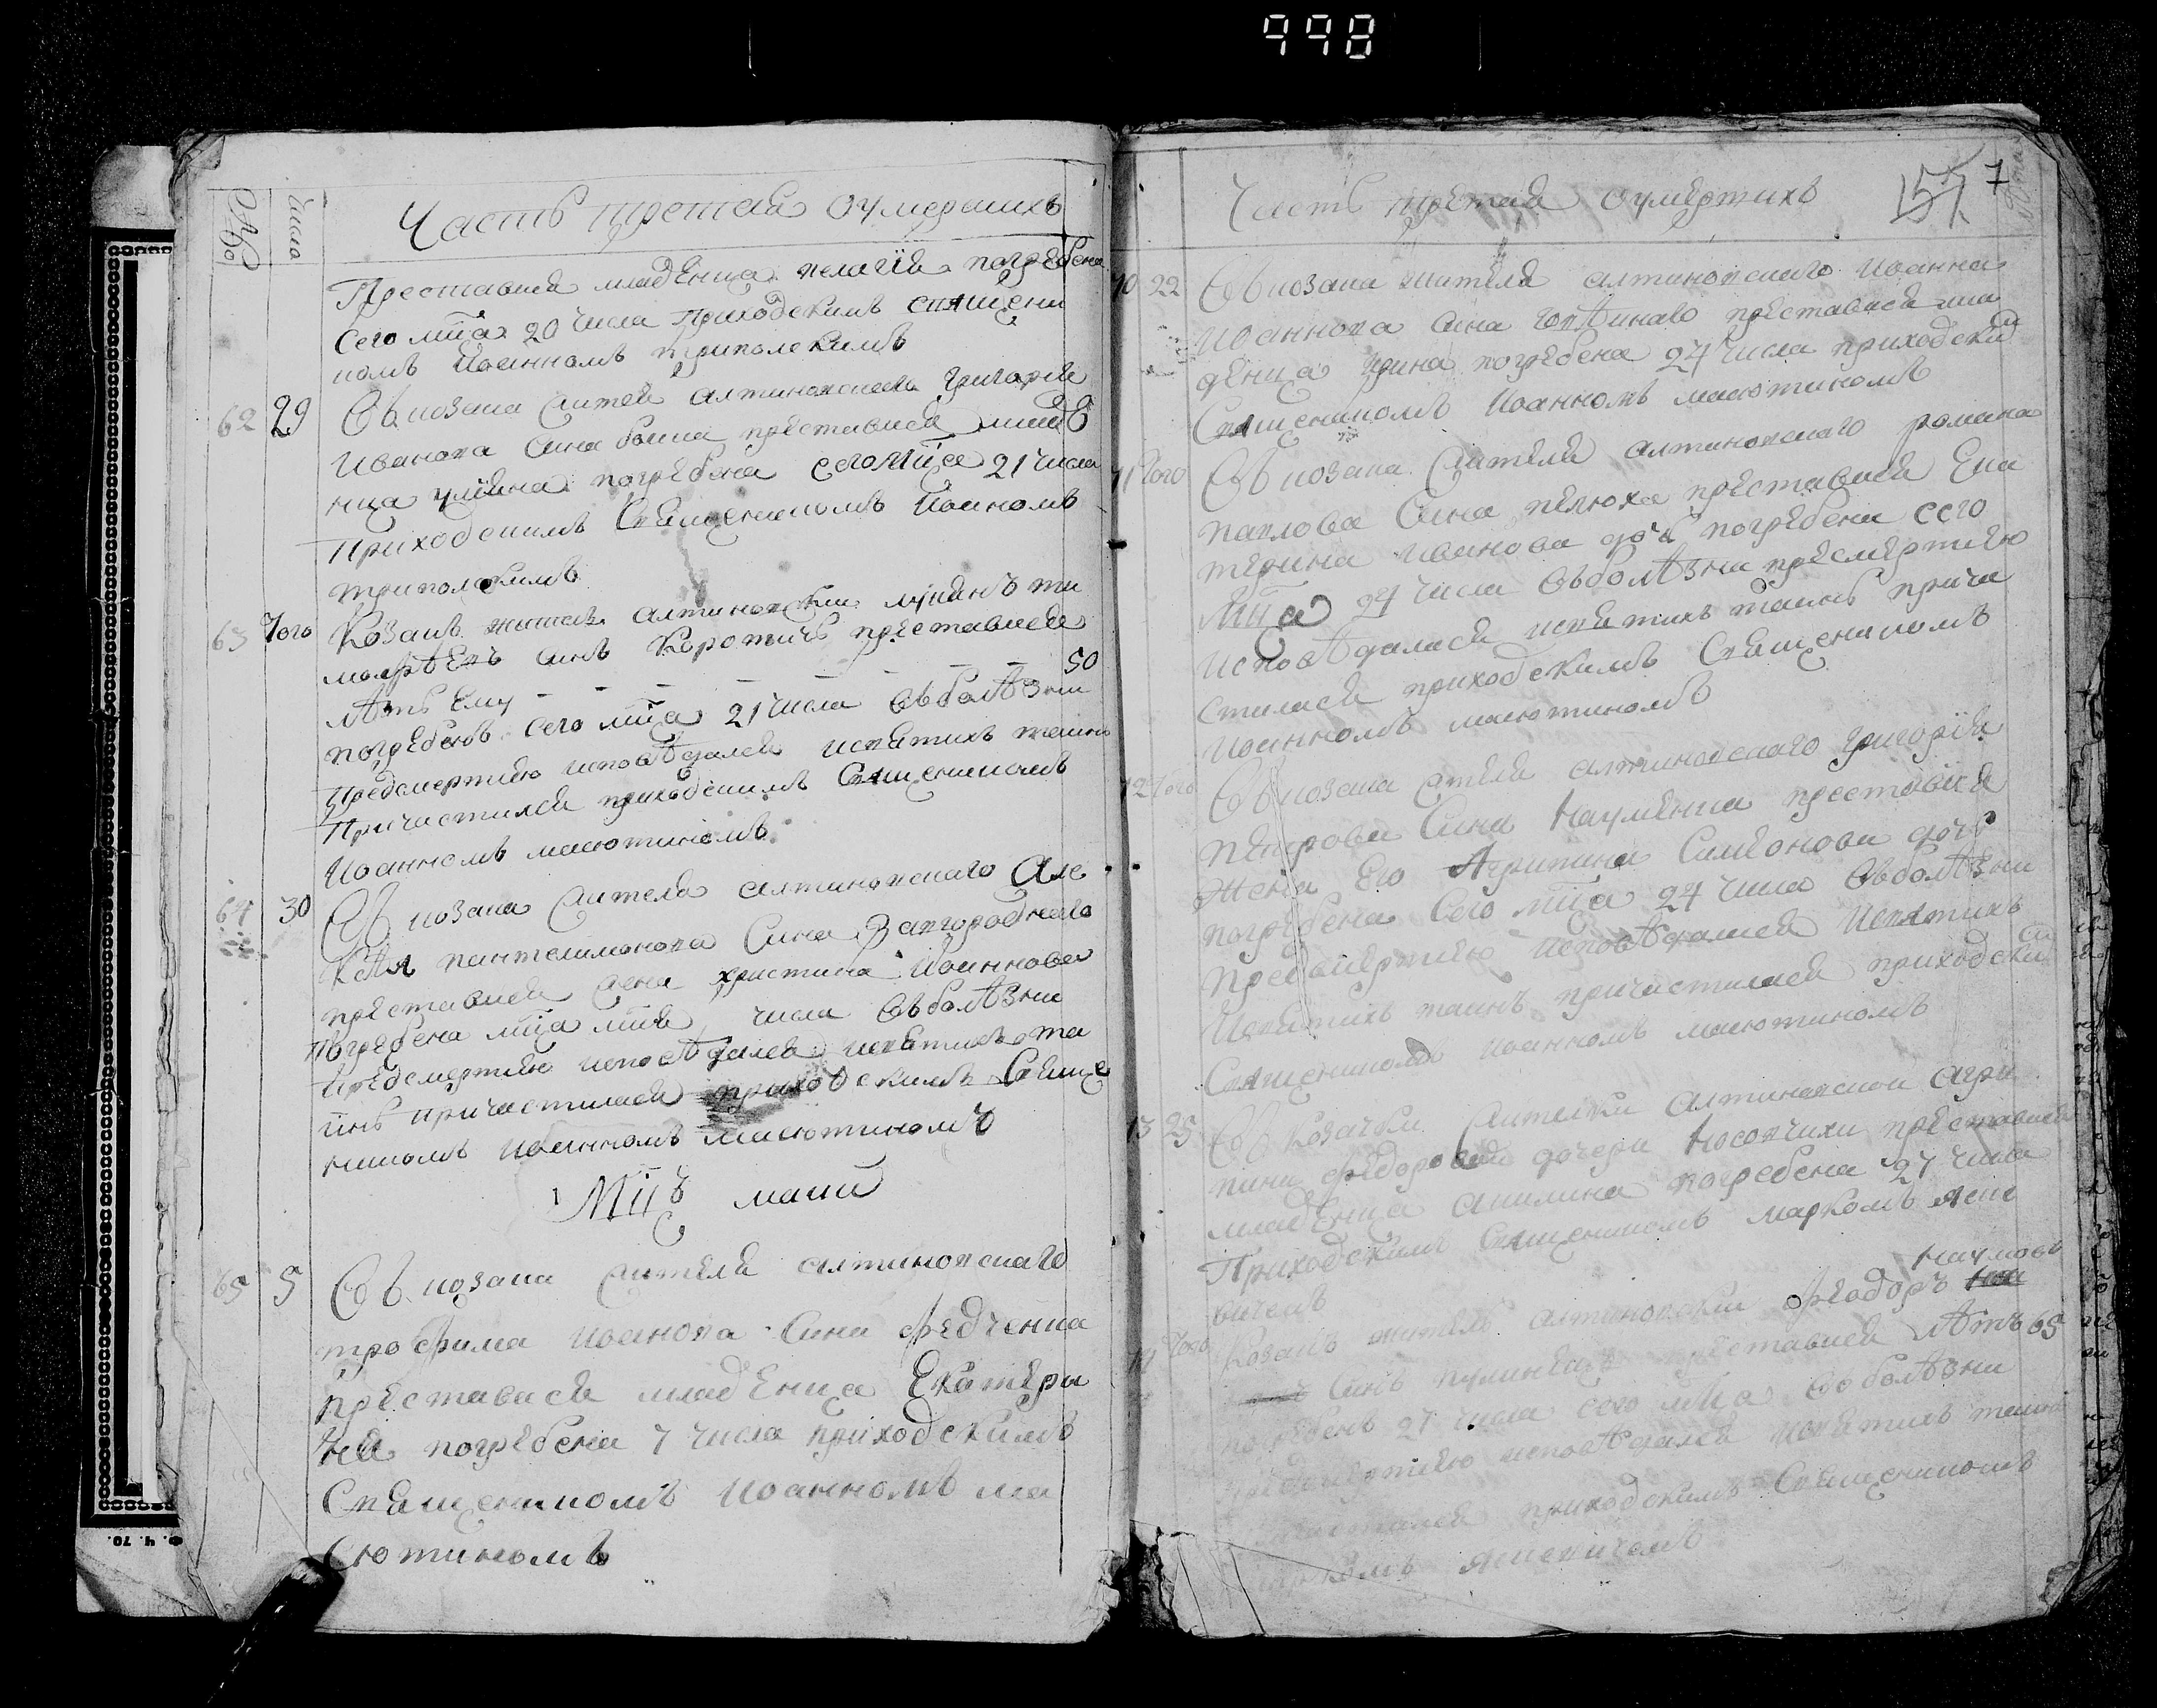 998
Числа
Часть третая о умершихъ
Преставися младеница пелагия погребена
сего мца 20 числа приходскимъ священи
комъ Иоанномъ триполскимъ
62 29 Въ козака жителя алтиновскаго григория
Иванова сина преставися младе
ница улияна погребена сего мца 21 числа
Приходскимъ Священикомъ Иоаномъ
триполскимъ
63 Того Козакъ житель алтиновский
синъ Коротичъ преставися
лѣтъ Ему 50
погребенъ сего мца 21 числа въ болѣзни
предсмертию исповѣдался исвятихъ таинъ
Причистился приходскимъ Священикомъ
Иоанномъ маютиномъ
64 30 Въ козака жителя алтиновскаго Але
ксѣя пантелимонова Сина Завгороднаго
преставися жена христина Иоаннова
Погребена мца числа въ болѣзни
предсмертию исповѣдалася исвятихъ та
инъ причистилася приходскимъ Свяще
никомъ Иоанномъ маютиномъ
Мцъ маий
65 5 Въ козака жителя алтиновскаго
трофима Иоанова Сина Федченка
преставися младеница Екатери
на погребена 7 числа приходскимъ
Священикомъ Иоанномъ ма
ютиномъ
157 7
Часть третая о умертихъ
70 22 Въ козака жителя алтиновскаго Иоанна
Иоаннова сина преставися мла
деница Ирина погребена 24 числа приходским
Священикомъ Иоанномъ маютиномъ
71 Того Въ козака жителя алтиновскаго романа
павлова Сина пелюха преставися Ека
терина Иванова дочь погребена сего
Мца 24 числа въ болѣзни пресмертию
исповѣдалася исвятихъ таинъ прича
стилася приходскимъ Священикомъ
Иоанномъ маютиномъ
72 Того Въ козака жителя алтиновскаго григория
петрова Сина Науменка преставися
жена Его Агрипина Симеонова дочь
погребена Сего мца 24 числа въ болѣзни
предсмертию исповѣдалася исвятихъ
исвятихъ таинъ причастилася приходски
Священикомъ Иоанномъ маютиномъ
73 25 Въ Козачки жителки алтиновской агри
пини федоровой дочери Носовчихи преставися
младеница акилина погребена 27 числа
Приходскимъ Священикомъ маркомъ Ясне
вичемъ
74 Того Козакъ житель алтиновский Феодоръ Наумовъ
синъ преставися лѣтъ 65
погребенъ 27 числа сего мца въ болѣзни
предсмертию исповѣдался исвятихъ таинъ
причастился приходскимъ Священикомъ
маркомъ Ясневичемъ